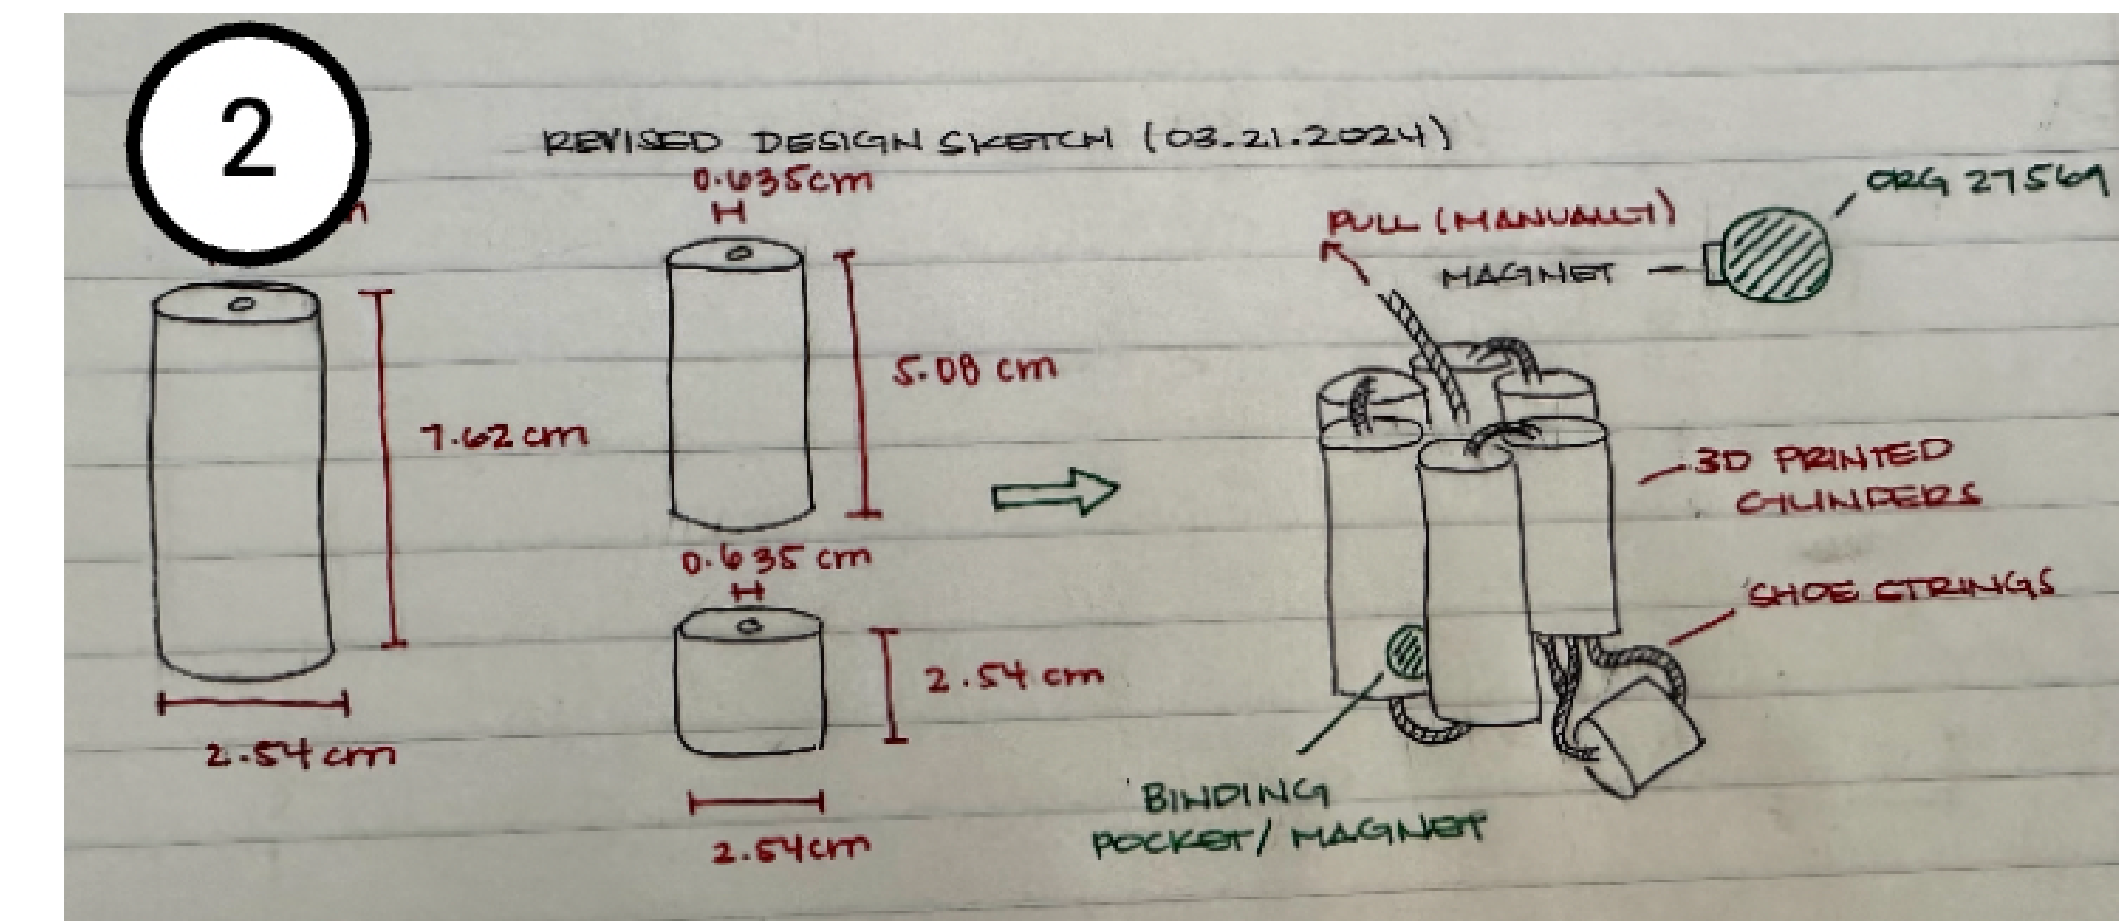 2
REVISED DESIGN SKETCH (03.21.2024)
0.635cm
m
7.62 cm
2.54 cm
5.08 cm
0.635 cm
2.54 cm
2.54cm
PULL (MANUALLY)
MAGNET
ORG 27569
3D PRINTED
CYLINDERS
SHOE STRINGS
BINDING
POCKET/ MAGNET